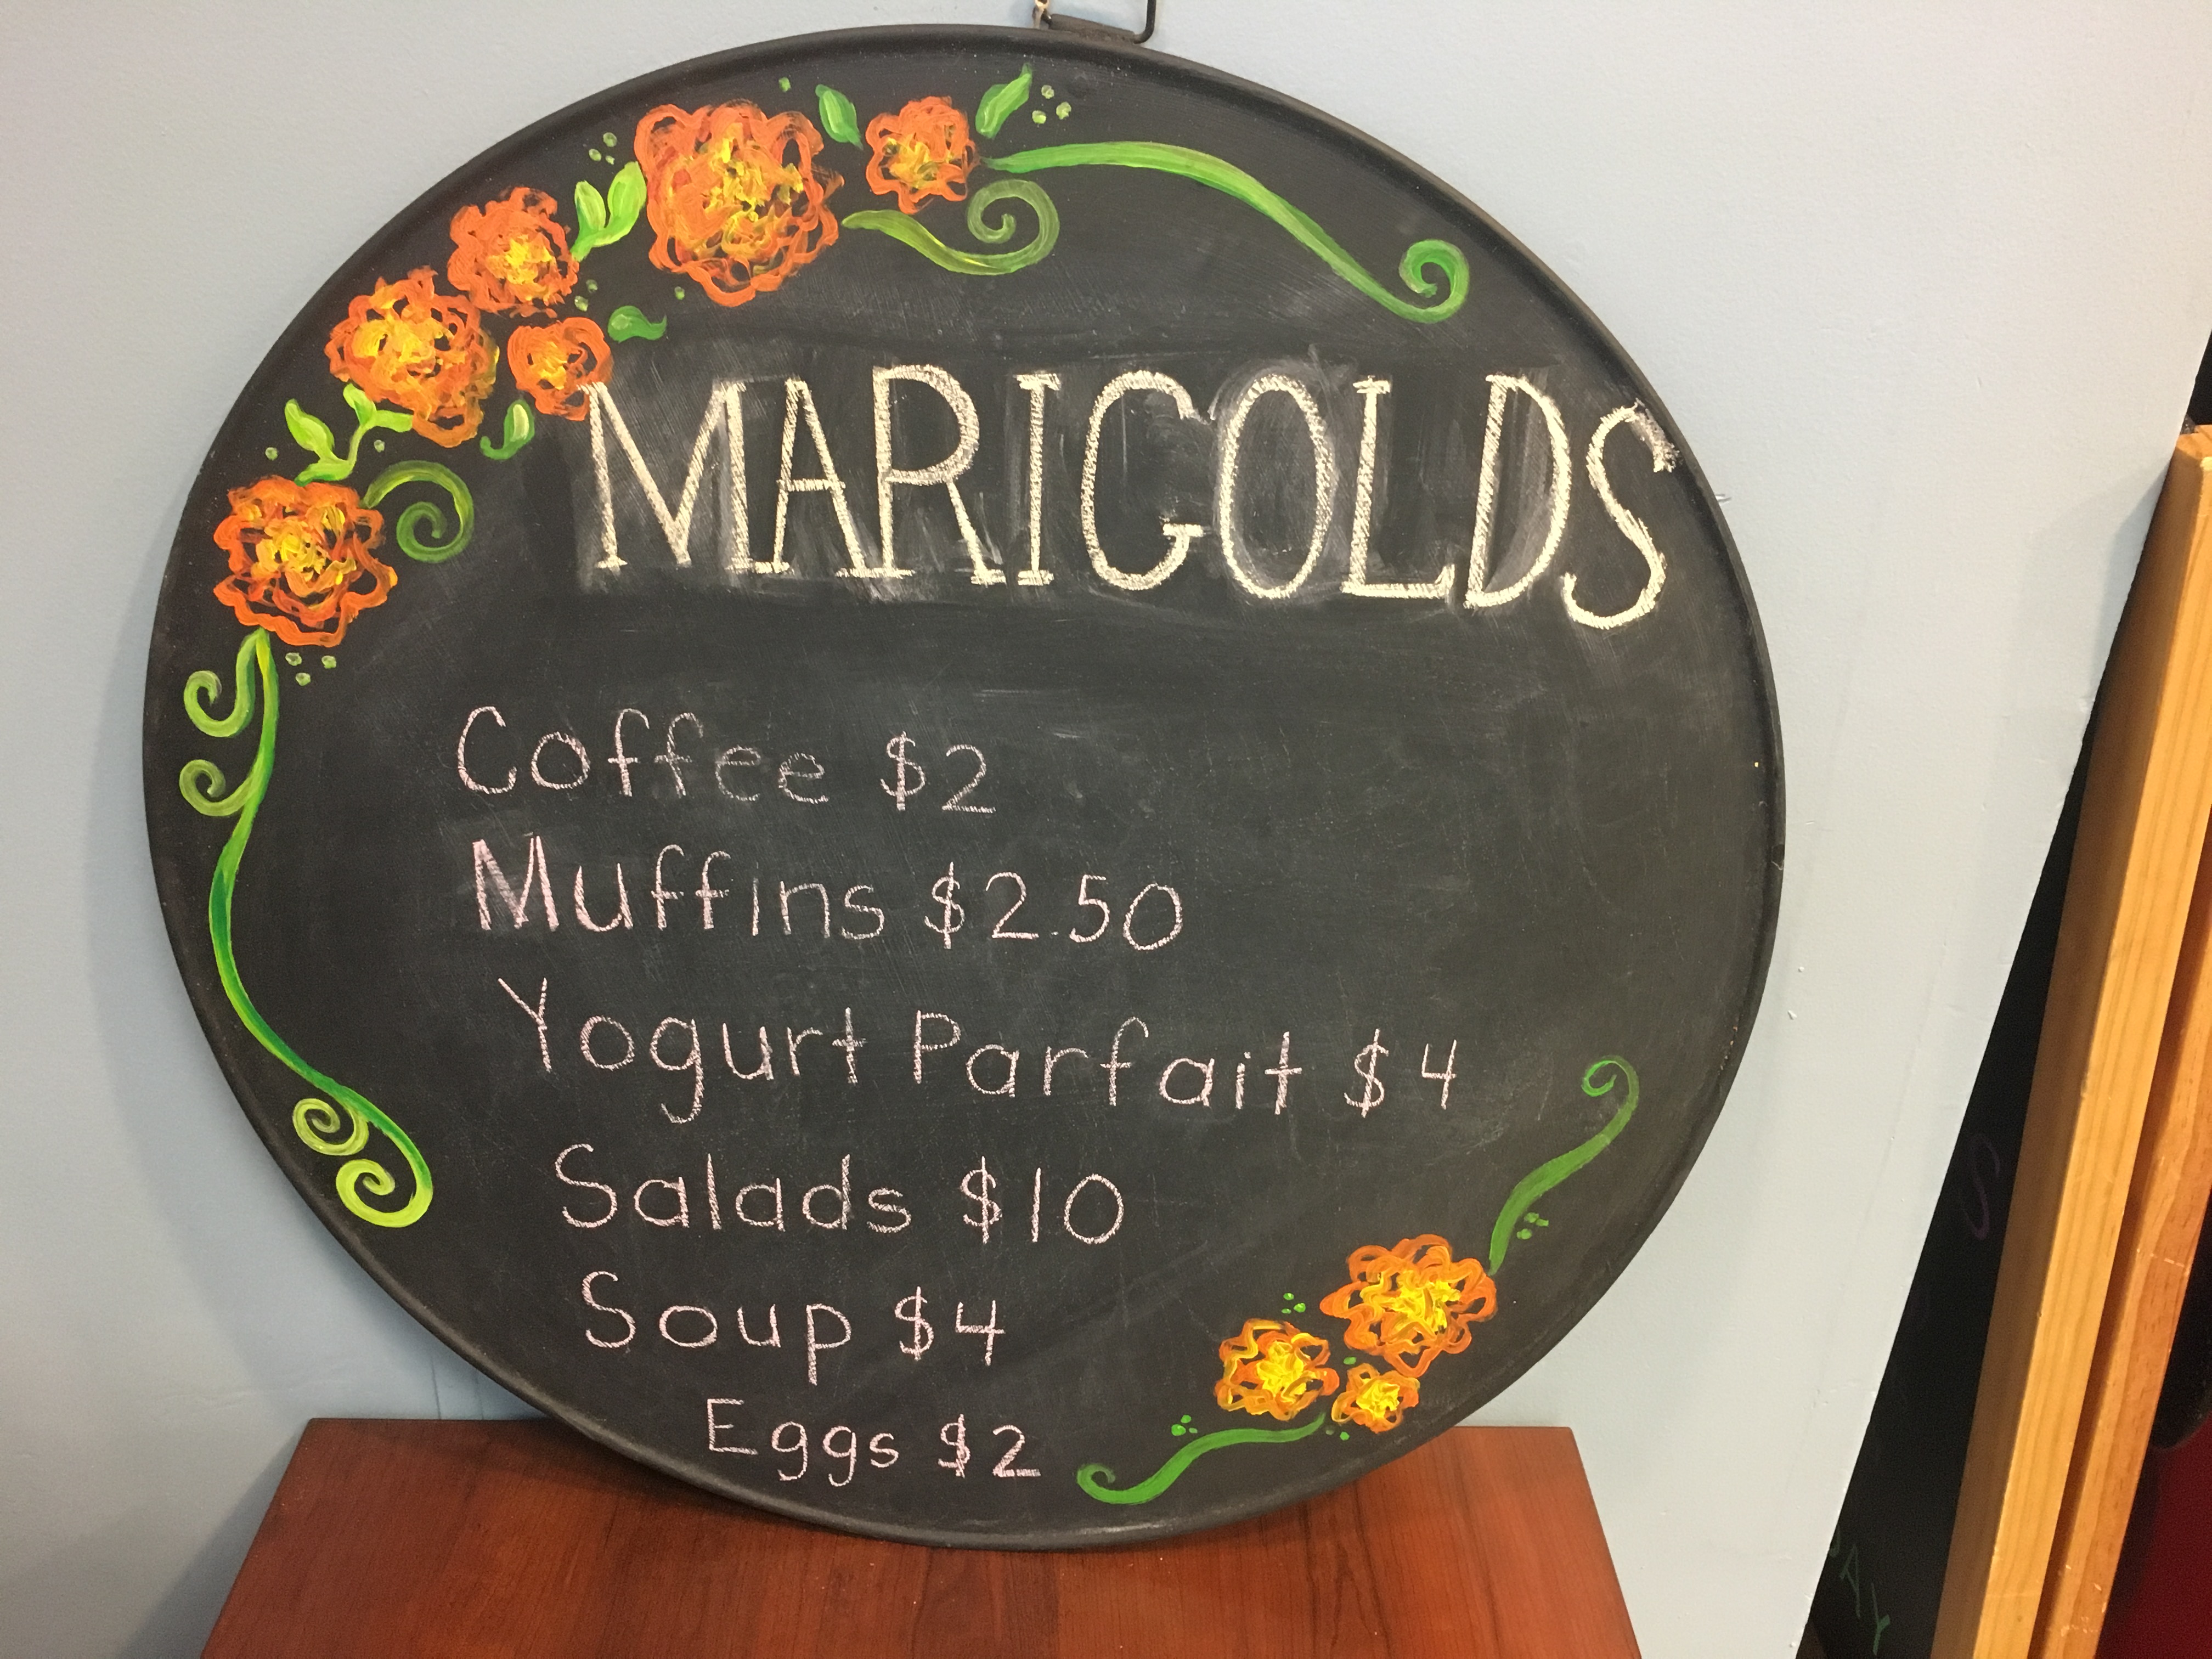 MARIGOLDS
Coffee $2
Muffins $2.50
Yogurt Parfait $4
Salads $10
Soup $4
Eggs $2